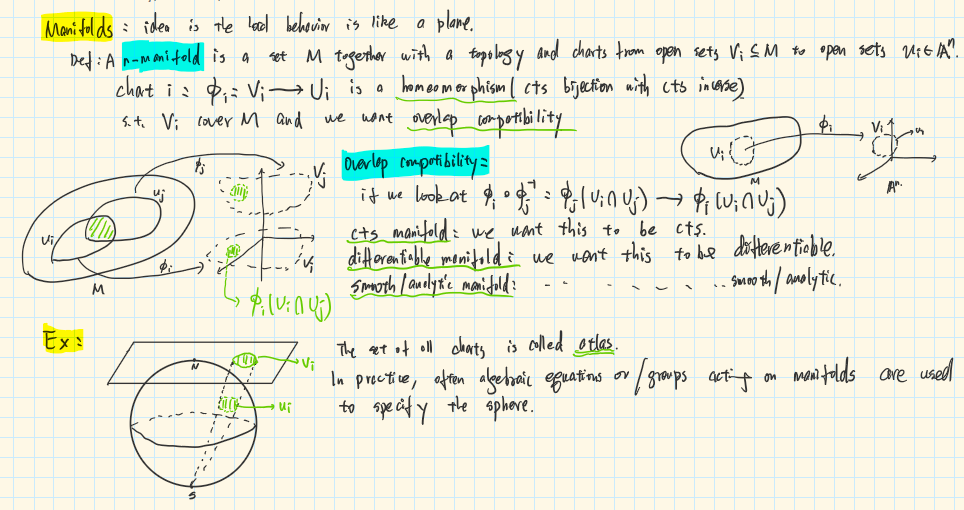 Manifolds : idea is the local behavior is like a plane.
Def : A n-manifold is a set M together with a topology and charts from open sets Vi ⊆ M to open sets Ui ⊆ Aⁿ.
chart i : ϕi : Vi → Ui is a homeomorphism ( cts bijection with cts inverse)
s.t. Vi cover M and we want overlap compatibility
Ui
M
ϕi
Vi
Aⁿ
ϕj
Uj
Ui
M
ϕi
Vj
Vi
ϕi(Ui∩Uj)
Overlap compatibility :
if we look at ϕi ∘ ϕj⁻¹ : ϕj(Ui∩Uj) → ϕi(Ui∩Uj)
cts manifold : we want this to be cts.
differentiable manifold : we want this to be differentiable.
smooth/analytic manifold : - - - - - - .. smooth/analytic.
Ex :
N
Vi
Ui
S
The set of all charts is called atlas.
In practice, often algebraic equations or /groups acting on manifolds are used
to specify the sphere.